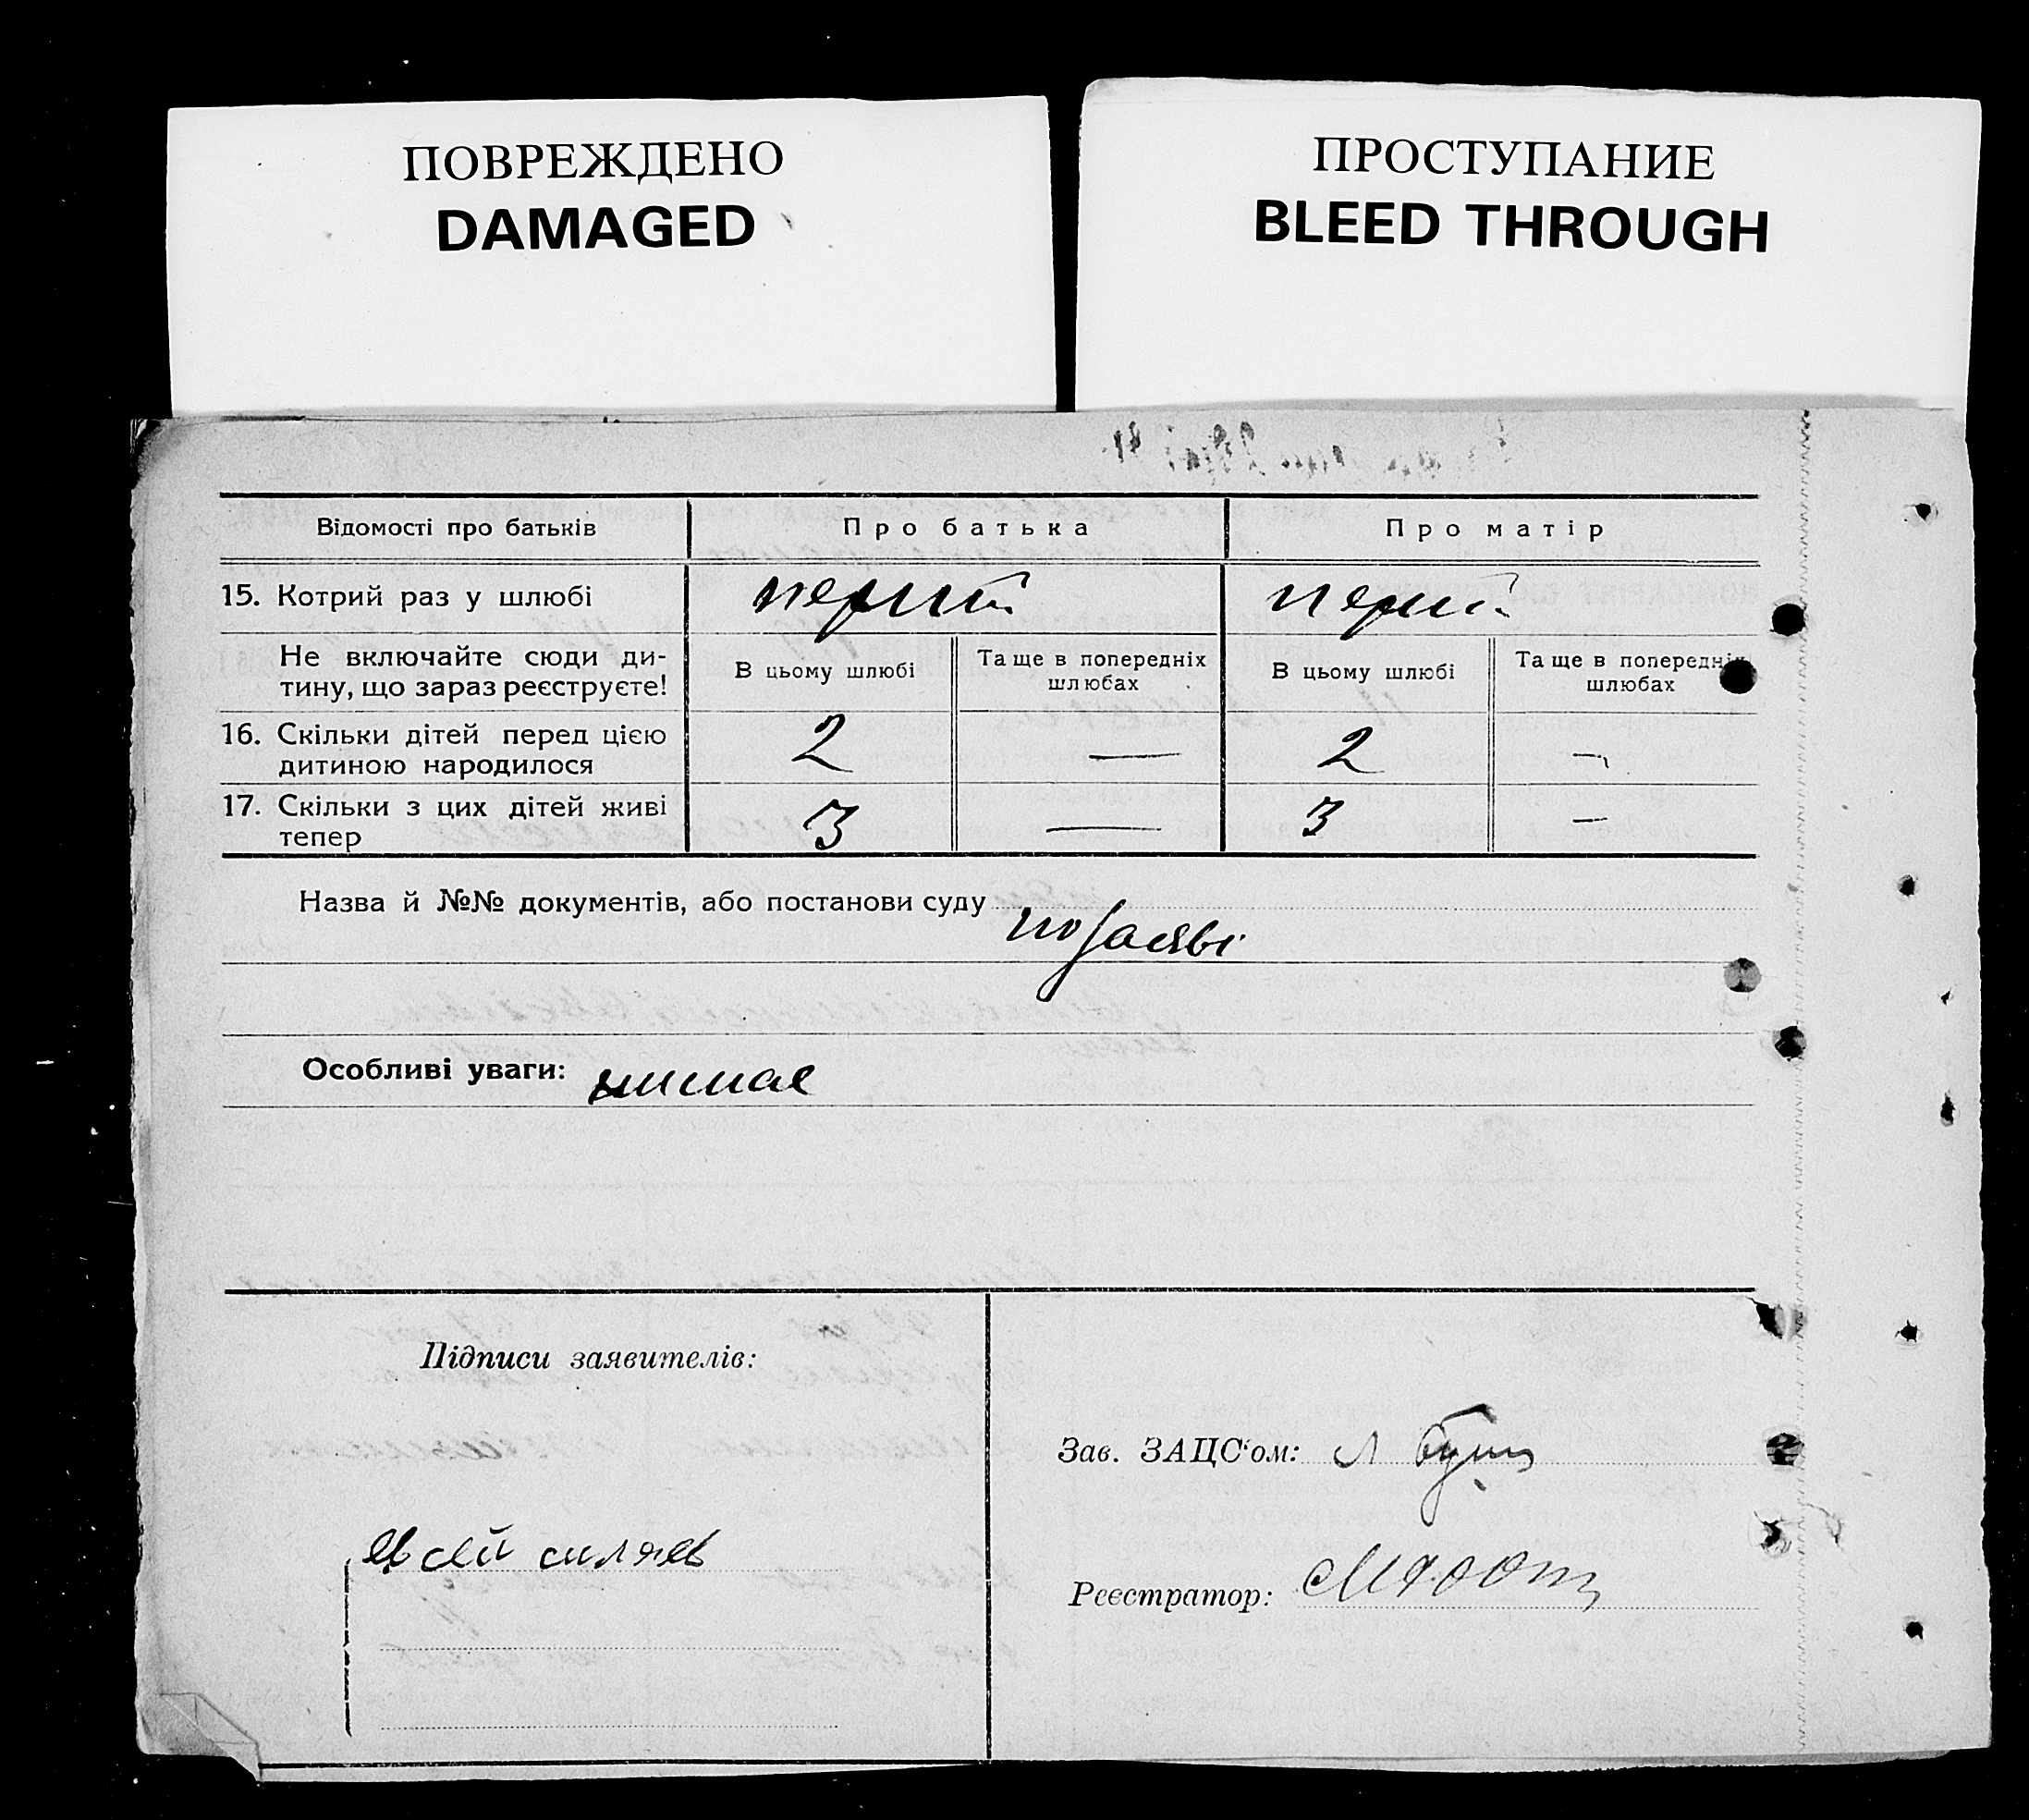 ПОВРЕЖДЕНО
DAMAGED
ПРОСТУПАНИЕ
BLEED THROUGH
Відомості про батьків
Про батька
Про матір
15. Котрий раз у шлюбі
Не включайте сюди ди-
тину, що зараз реєструєте!
В цьому шлюбі
Та ще в попередніх
шлюбах
В цьому шлюбі
Та ще в попередніх
шлюбах
16. Скільки дітей перед цією
дитиною народилося
2 — 2 —
17. Скільки з цих дітей живі
тепер
3 — 3 —
Назва й №№ документів, або постанови суду
по заяві
Особливі уваги: нимає
Підписи заявителів:
Зав. ЗАЦС'ом:
Реєстратор: